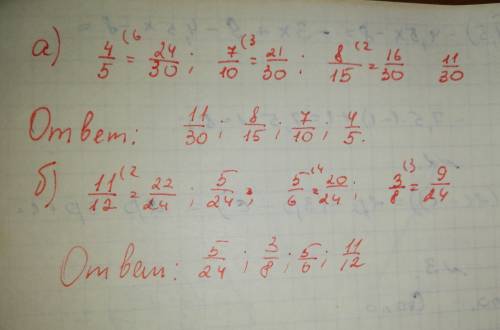 а) 4/5 (6 = 24/30; 7/10 (3 = 21/30; 8/15 (2 = 16/30 11/30
Ответ: 11/30; 8/15; 7/10; 4/5.
б) 11/12 (2 = 22/24; 5/24; 5/6 (4 = 20/24; 3/8 (3 = 9/24
Ответ: 5/24; 3/8; 5/6; 11/12